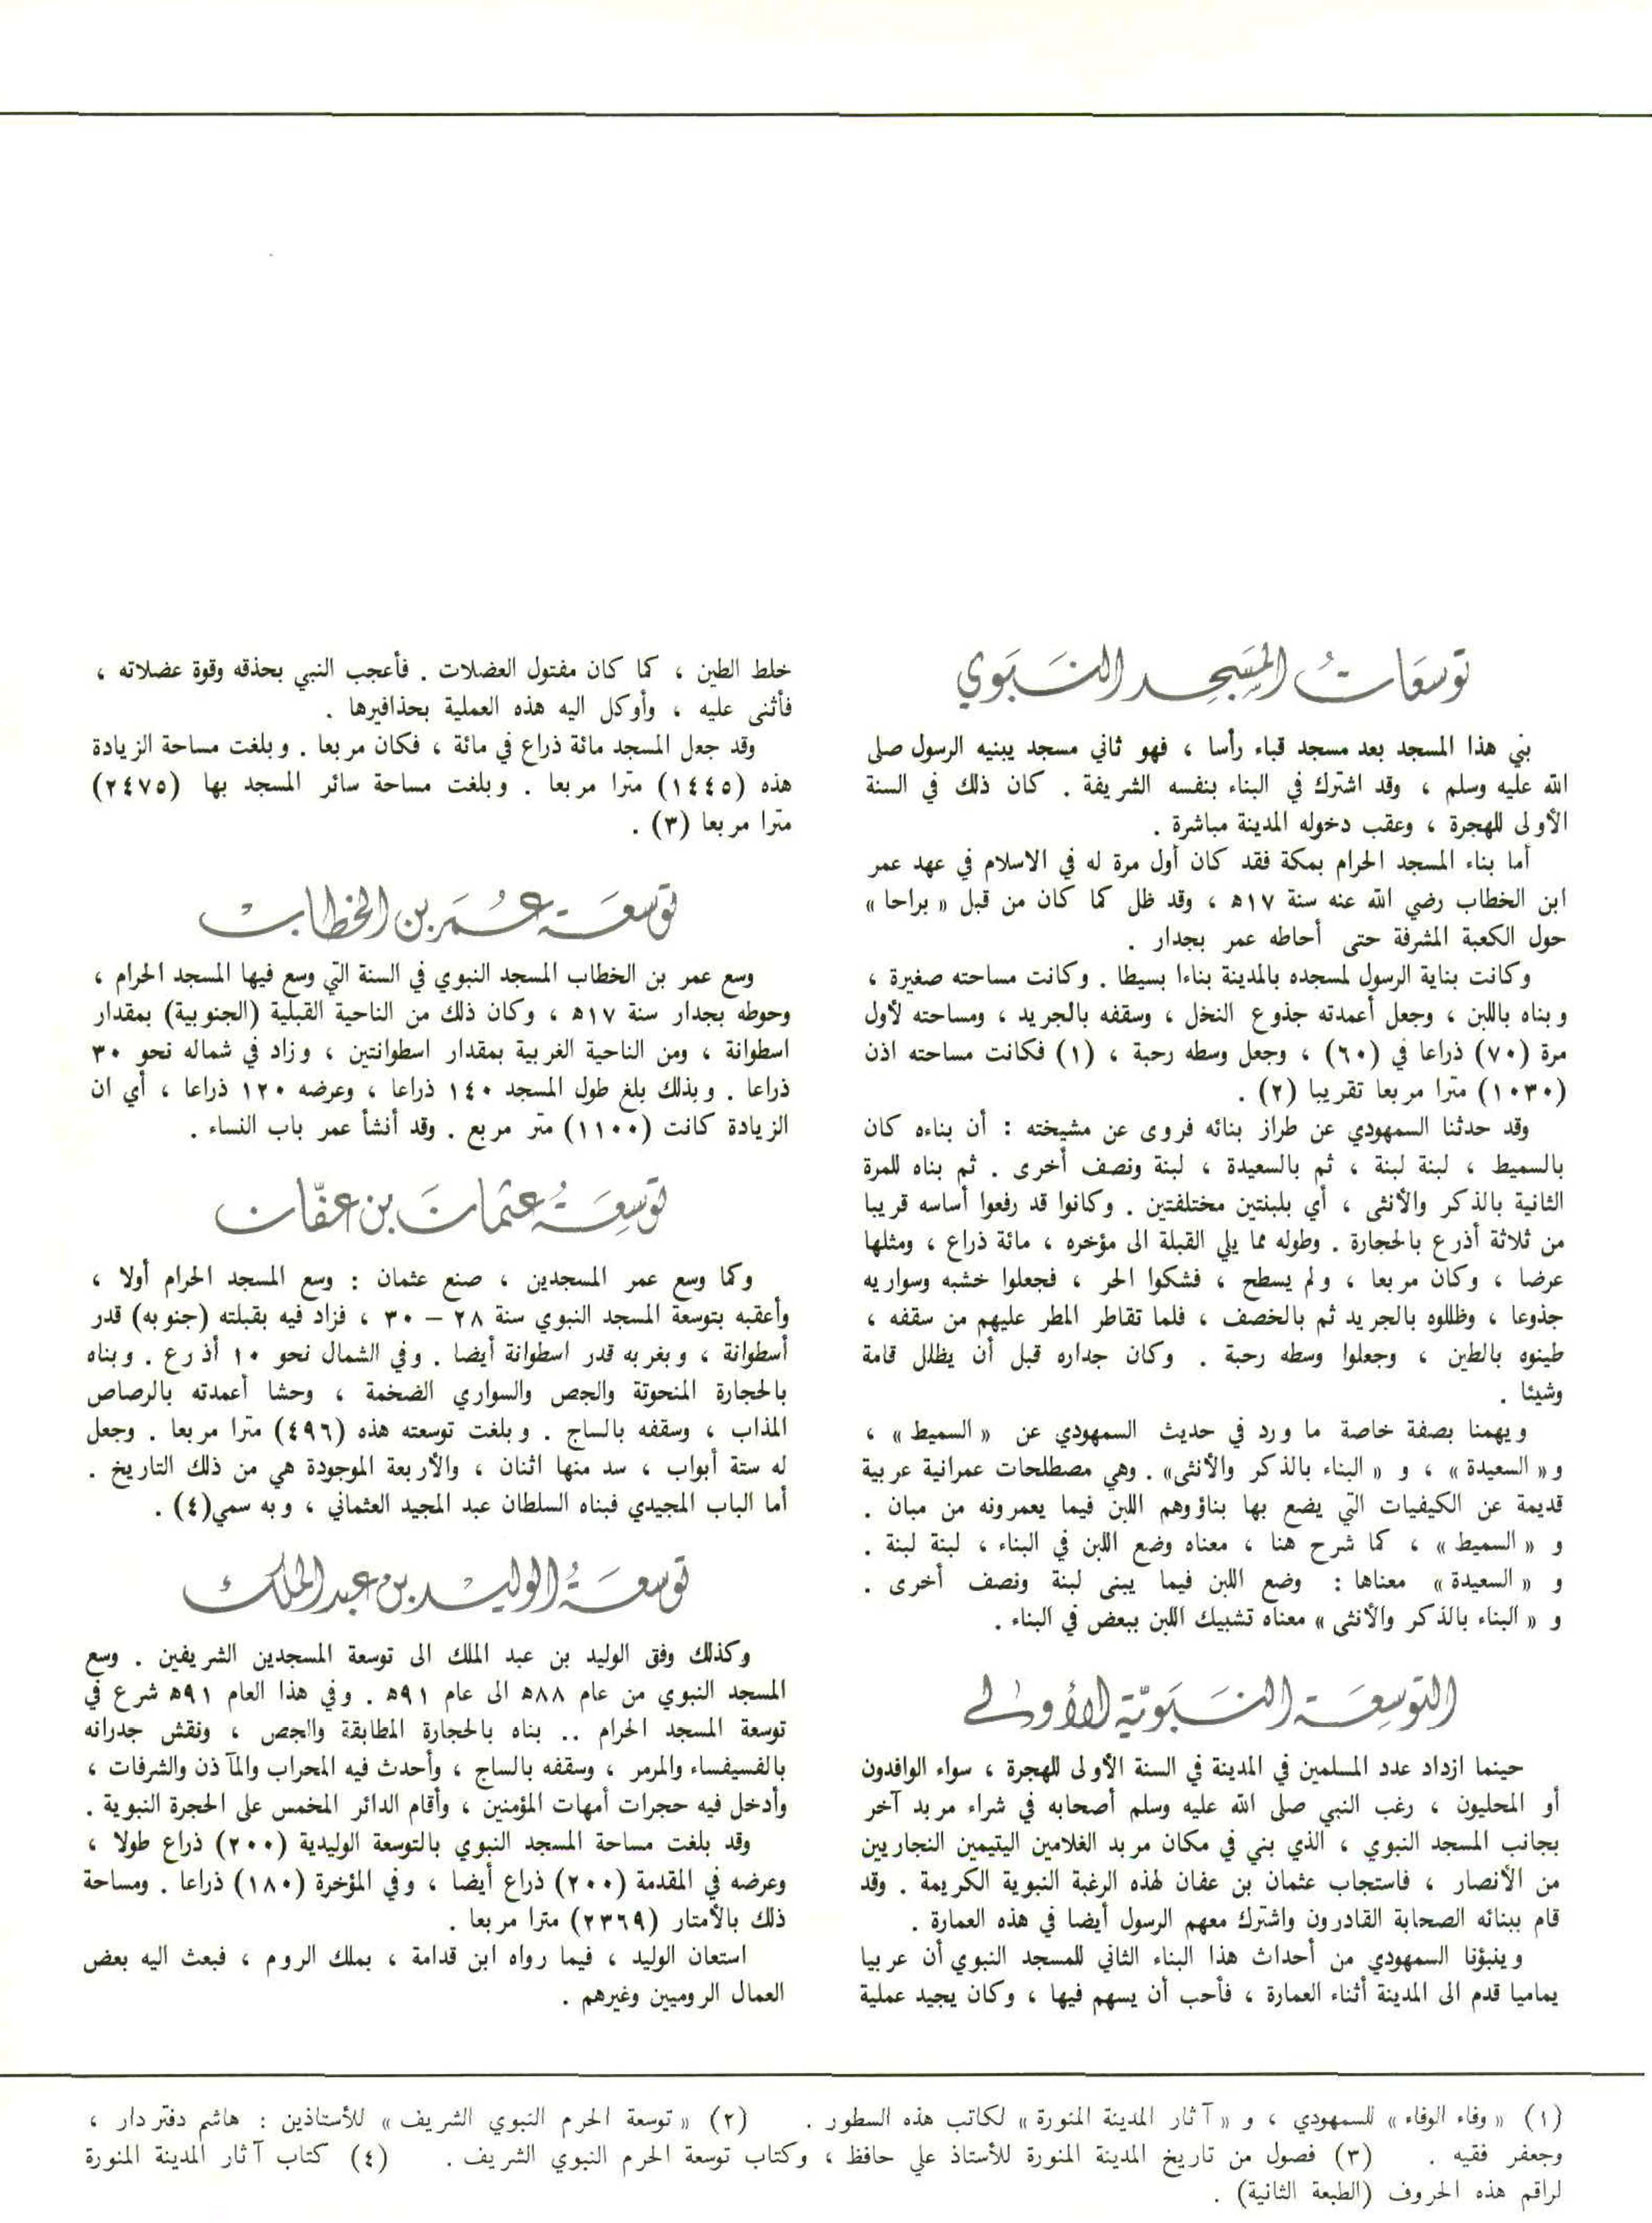 توسعات المسجد النبوي
بني هذا المسجد بعد مسجد قباء رأسا ، فهو ثاني مسجد يبنيه الرسول صلى
الله عليه وسلم ، وقد اشترك في البناء بنفسه الشريفة . كان ذلك في السنة
الأولى للهجرة ، وعقب دخوله المدينة مباشرة .
أما بناء المسجد الحرام بمكة فقد كان أول مرة له في الاسلام في عهد عمر
ابن الخطاب رضي الله عنه سنة ١٧ه ، وقد ظل كما كان من قبل « براحا »
حول الكعبة المشرفة حتى أحاطه عمر بجدار .
وكانت بناية الرسول لمسجده بالمدينة بناءا بسيطا . وكانت مساحته صغيرة ،
وبناه باللبن ، وجعل أعمدته جذوع النخل ، وسقفه بالجريد ، ومساحته لأول
مرة (٧٠) ذراعا في (٦٠) ، وجعل وسطه رحبة ، (١) فكانت مساحته اذن
(١٠٣٠) مترا مربعا تقريبا (٢) .
وقد حدثنا السمهودي عن طراز بنائه فروى عن مشيخته : أن بناءه كان
بالسميط ، لبنة لبنة ، ثم بالسعيدة ، لبنة ونصف أخرى . ثم بناه للمرة
الثانية بالذكر والأنثى ، أي بلبنتين مختلفتين . وكانوا قد رفعوا أساسه قريبا
من ثلاثة أذرع بالحجارة . وطوله مما يلي القبلة الى مؤخره ، مائة ذراع ، ومثلها
عرضا ، وكان مربعا ، ولم يسطح ، فشكوا الحر ، فجعلوا خشبه وسواريه
جذوعا ، وظللوه بالجريد ثم بالخصف ، فلما تقاطر المطر عليهم من سقفه ،
طينوه بالطين ، وجعلوا وسطه رحبة . وكان جداره قبل أن يظلل قامة
وشيئا .
ويهمنا بصفة خاصة ما ورد في حديث السمهودي عن « السميط » ،
و« السعيدة » ، و « البناء بالذكر والأنثى» . وهي مصطلحات عمرانية عربية
قديمة عن الكيفيات التي يضع بها بناؤوهم اللبن فيما يعمرونه من مبان .
و « السميط » ، كما شرح هنا ، معناه وضع اللبن في البناء ، لبنة لبنة .
و « السعيدة» معناها : وضع اللبن فيما يبنى لبنة ونصف أخرى .
و « البناء بالذكر والأنثى » معناه تشبيك اللبن ببعض في البناء .
التوسعة النبوية الأولى
حينما ازداد عدد المسلمين في المدينة في السنة الأولى للهجرة ، سواء الوافدون
أو المحليون ، رغب النبي صلى الله عليه وسلم أصحابه في شراء مربد آخر
بجانب المسجد النبوي ، الذي بني في مكان مربد الغلامين اليتيمين النجاريين
من الأنصار ، فاستجاب عثمان بن عفان لهذه الرغبة النبوية الكريمة . وقد
قام ببنائه الصحابة القادرون واشترك معهم الرسول أيضا في هذه العمارة .
وينبؤنا السمهودي من أحداث هذا البناء الثاني للمسجد النبوي أن عربيا
يماميا قدم الى المدينة أثناء العمارة ، فأحب أن يسهم فيها ، وكان يجيد عملية
خلط الطين ، كما كان مفتول العضلات . فأعجب النبي بحذقه وقوة عضلاته ،
فأثنى عليه ، وأوكل اليه هذه العملية بحذافيرها .
وقد جعل المسجد مائة ذراع في مائة ، فكان مربعا . وبلغت مساحة الزيادة
هذه (١٤٤٥) مترا مربعا . وبلغت مساحة سائر المسجد بها (٢٤٧٥)
مترا مربعا (٣) .
توسعة عمر بن الخطاب
وسع عمر بن الخطاب المسجد النبوي في السنة التي وسع فيها المسجد الحرام ،
وحوطه بجدار سنة ١٧ه ، وكان ذلك من الناحية القبلية (الجنوبية) بمقدار
اسطوانة ، ومن الناحية الغربية بمقدار اسطوانتين ، وزاد في شماله نحو ٣٠
ذراعا . وبذلك بلغ طول المسجد ١٤٠ ذراعا ، وعرضه ١٢٠ ذراعا ، أي ان
الزيادة كانت (١١٠٠) متر مربع . وقد أنشأ عمر باب النساء .
توسعة عثمان بن عفان
وكما وسع عمر المسجدين ، صنع عثمان : وسع المسجد الحرام أولا ،
وأعقبه بتوسعة المسجد النبوي سنة ٢٨ – ٣٠ ، فزاد فيه بقبلته (جنوبه) قدر
أسطوانة ، وبغربه قدر اسطوانة أيضا . وفي الشمال نحو ١٠ أذرع . وبناه
بالحجارة المنحوتة والجص والسواري الضخمة ، وحشا أعمدته بالرصاص
المذاب ، وسقفه بالساج . وبلغت توسعته هذه (٤٩٦) مترا مربعا . وجعل
له ستة أبواب ، سد منها اثنان ، والأربعة الموجودة هي من ذلك التاريخ .
أما الباب المجيدي فبناه السلطان عبد المجيد العثماني ، وبه سمي(٤) .
توسعة الوليد بن عبد الملك
وكذلك وفق الوليد بن عبد الملك الى توسعة المسجدين الشريفين . وسع
المسجد النبوي من عام ٨٨ه الى عام ٩١ه . وفي هذا العام ٩١ه شرع في
توسعة المسجد الحرام .. بناه بالحجارة المطابقة والجص ، ونقش جدرانه
بالفسيفساء والمرمر ، وسقفه بالساج ، وأحدث فيه المحراب والمآذن والشرفات ،
وأدخل فيه حجرات أمهات المؤمنين ، وأقام الدائر المخمس على الحجرة النبوية .
وقد بلغت مساحة المسجد النبوي بالتوسعة الوليدية (٢٠٠) ذراع طولا ،
وعرضه في المقدمة (٢٠٠) ذراع أيضا ، وفي المؤخرة (١٨٠) ذراعا . ومساحة
ذلك بالأمتار (٢٣٦٩) مترا مربعا .
استعان الوليد ، فيما رواه ابن قدامة ، بملك الروم ، فبعث اليه بعض
العمال الروميين وغيرهم .
(١) « وفاء الوفاء» للسمهودي ، و « آثار المدينة المنورة » لكاتب هذه السطور . (٢) « توسعة الحرم النبوي الشريف » للأستاذين : هاشم دفتردار ،
وجعفر فقيه . (٣) فصول من تاريخ المدينة المنورة للأستاذ علي حافظ ، وكتاب توسعة الحرم النبوي الشريف . (٤) كتاب آثار المدينة المنورة
لراقم هذه الحروف (الطبعة الثانية) .